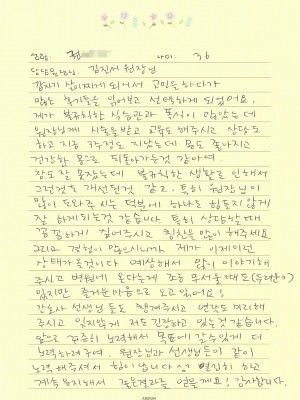 성함: 정 나이: 36
담당원장님: 김진서 원장님
갑자기 살이찌게 되어서 고민을하다가
많은 후기들을 읽어보고 선택하게 되었어요.
제가 불규칙한 식습관과 폭식이 많았는데
원장님께 시술을받고 교육도 해주시고 상담도
하고 지금 3주정도 지났는데 몸도 좋아지고
건강한 몸으로 되돌아가는것 같아여.
잠도 잘 못잤는데 불규칙한 생활로 인해서
그런것도 개선된것 같고. 특히 원장님이
많이 도와주시는 덕분에 하나도 힘들지않게
잘 하게되는것 같습니다. 특히 상담할때
꼼꼼하게 짚어주시고 칭찬을 많이 해주세요
그리고 경험이 많으시니까 제가 이제이런
상태가 올것이다 예상해서 많이 이야기해
주시고 병원에 온다는게 조금 무서울때도
있지만 즐거운마음으로 오고있어요!
간호사 선생님들도 챙겨주시고 연락도 먼저해
주시고 잊지않게 저도 긴장하고 있는것 같습니다.
앞으로 꾸준히 노력해서 목표에 갈수있게 더
노력하려구여. 원장님과 선생님들이 같이
노력해주셔서 힘이납니다 넘 열심히 하고
계속 유지해서 좋은결과를 얻을께요! 감사합니다.